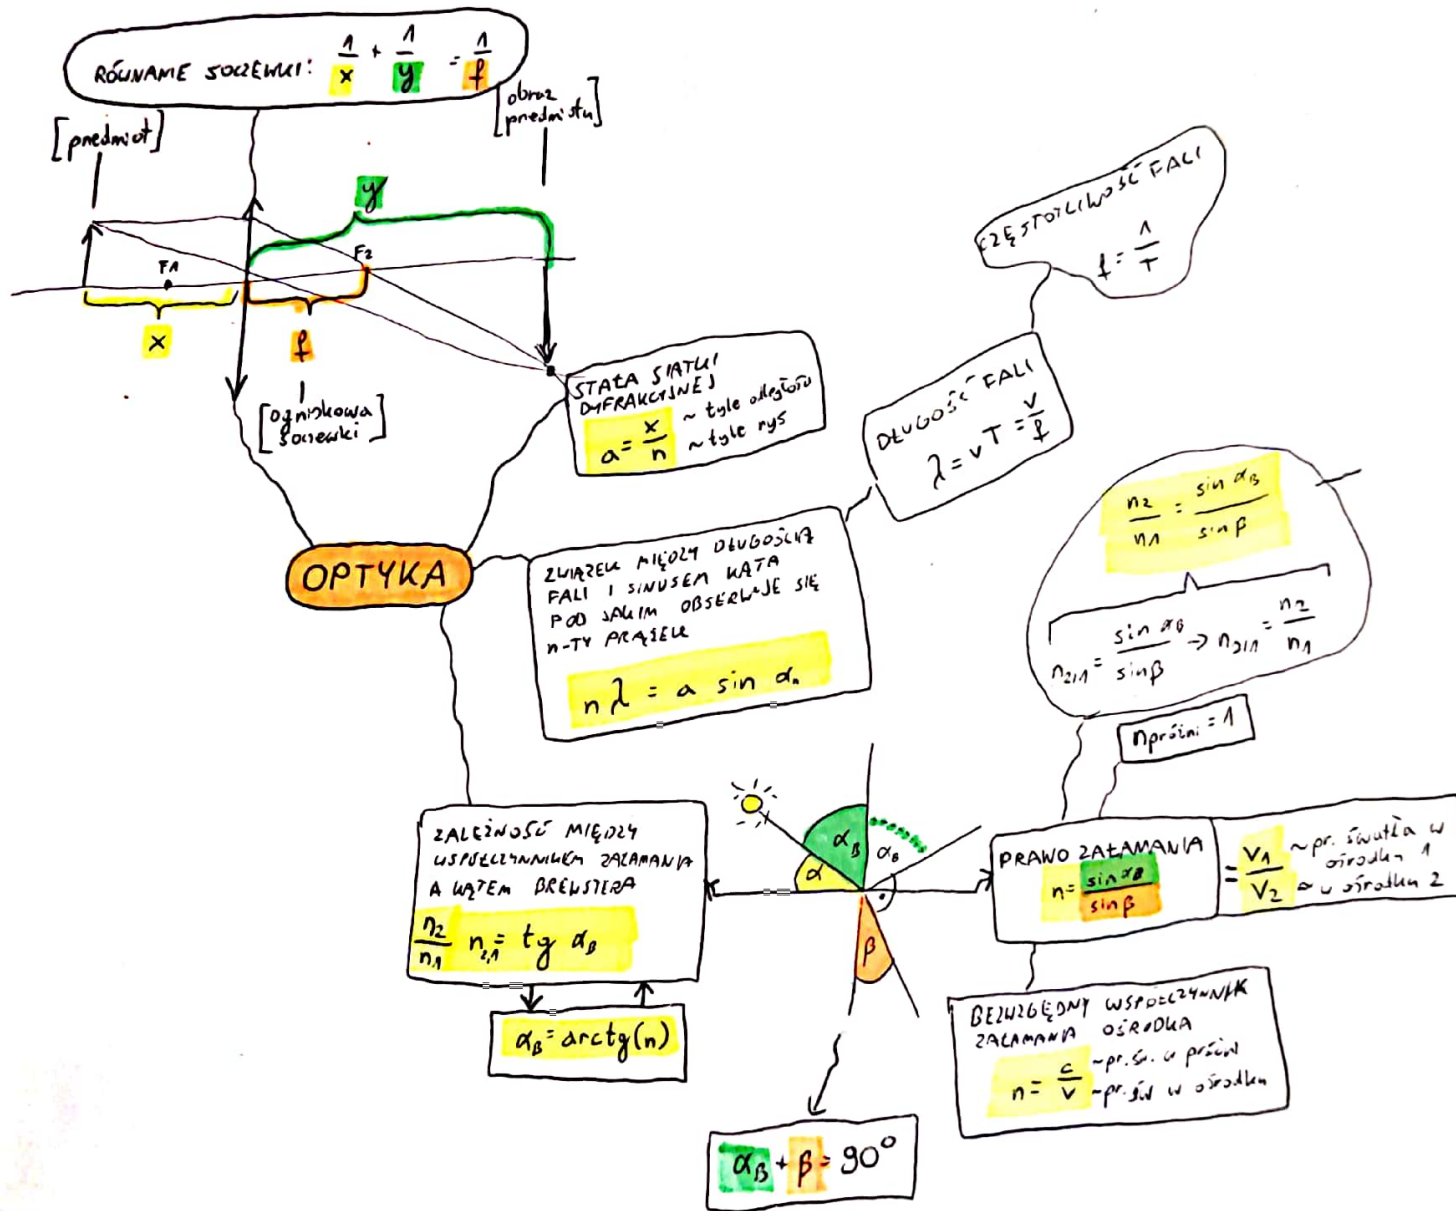 RÓWNANIE SOCZEWKI: 1/x + 1/y = 1/f
[przedmiot]
[obraz
przedmiotu]
y
F1
F2
x
f
[ogniskowa
soczewki]
CZĘSTOTLIWOŚĆ FALI
f = 1/T
STAŁA SIATKI
DYFRAKCYJNEJ
a = x/n ~ tyle odległości
~ tyle rys
DŁUGOŚĆ FALI
λ = vT = v/f
OPTYKA
ZWIĄZEK MIĘDZY DŁUGOŚCIĄ
FALI I SINUSEM KĄTA
POD JAKIM OBSERWUJE SIĘ
n-TY PRĄŻEK
n λ = a sin αn
n2/n1 = sin αB/sin β
n2/1 = sin αB/sin β → n2/1 = n2/n1
n próżni = 1
ZALEŻNOŚĆ MIĘDZY
WSPÓŁCZYNNIKIEM ZAŁAMANIA
A KĄTEM BREWSTERA
n2/n1 n2,1 = tg αB
αB = arctg(n)
α
αB
αB
β
PRAWO ZAŁAMANIA
n = sin αB/sin β = V1/V2 ~ pr. światła w
ośrodku 1
~ w ośrodku 2
BEZWZGLĘDNY WSPÓŁCZYNNIK
ZAŁAMANIA OŚRODKA
n = c/v ~ pr. św. w próżni
~ pr. św w ośrodku
αB + β = 90°